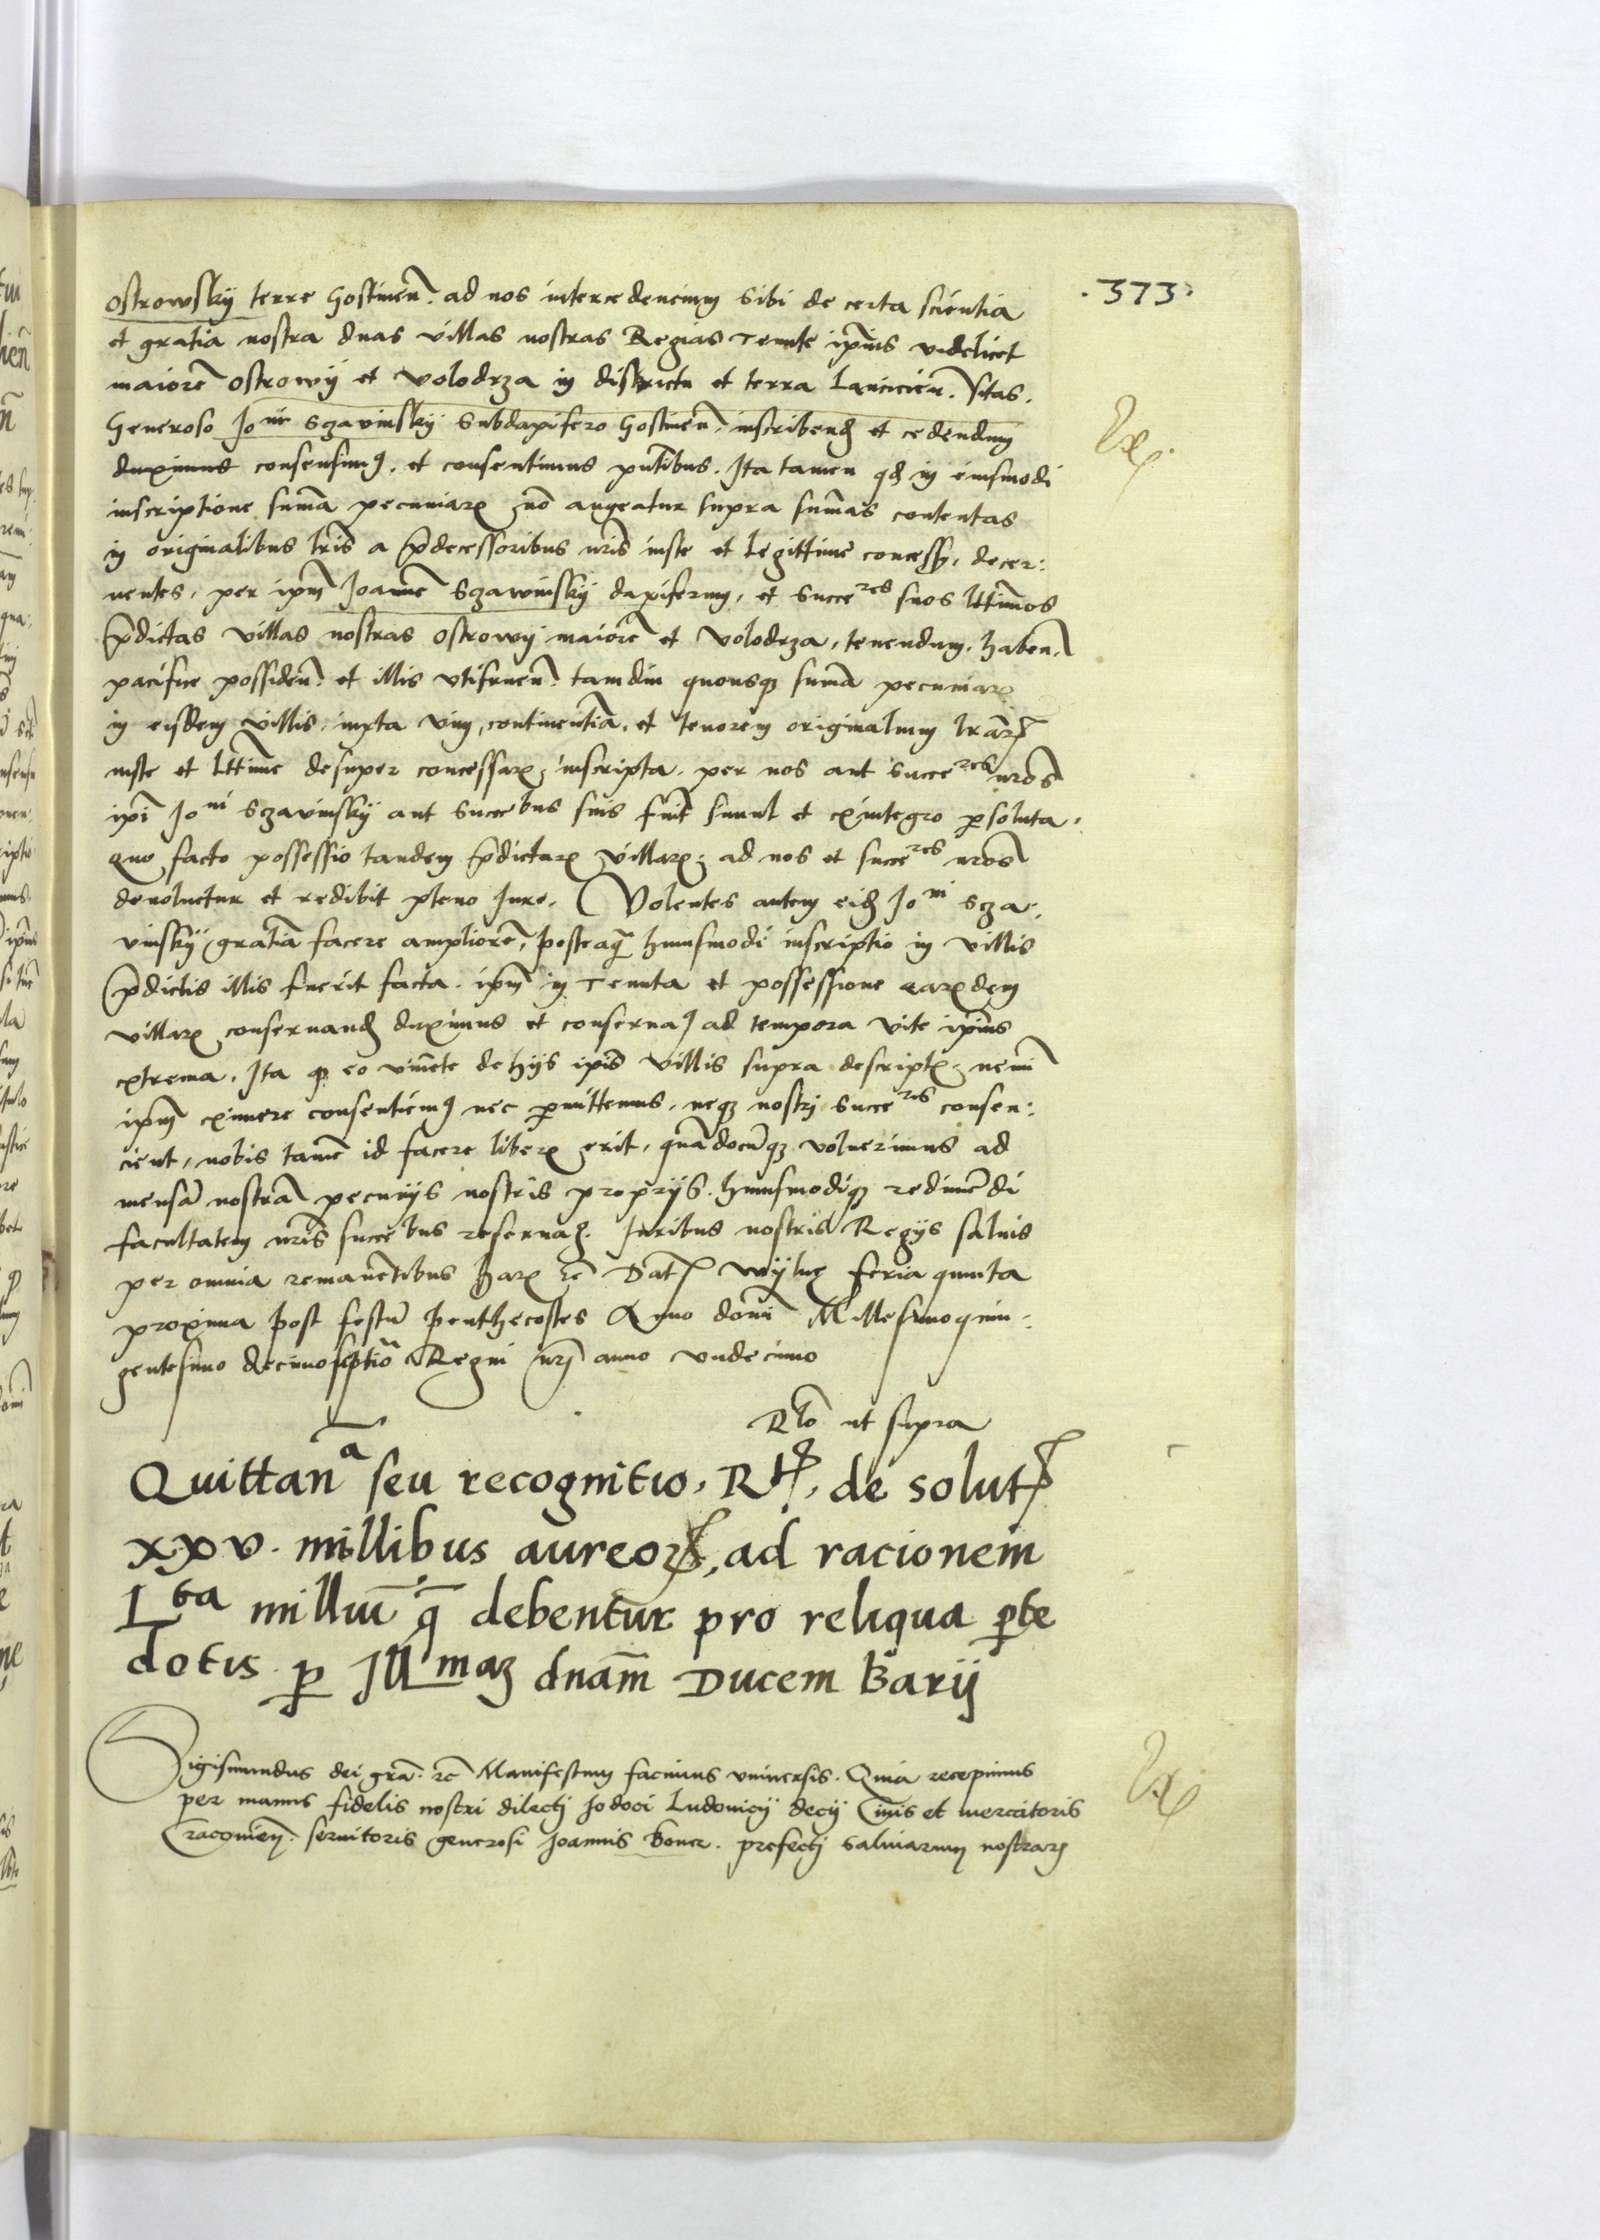 .373.
ostrowskÿ terre Gostinen̄. ad nos intercedencium sibi de certa scientia
et gratia nostra duas villas nostras Regias Tenute ip̄ius videlicet
maiorē ostrowÿ et volodrza in districtu et terra Lancicien̄. sitas.
Generoso Joⁿⁱ sczavinskÿ subdapifero Gostinen̄. inscribend̄ et cedendum
duximus consensimꝰ. et consentimus pn̄tibus. Ita tamen qd̄ in eiusmodi
inscriptione sum̄a pecuniarꝝ nō augeatur supra sum̄as contentas
in originalibus lr̄is a p̄decessoribus nr̄is iuste et legittime concess̄. decer:
nentes. per ip̄m Joannē sczawinskÿ dapiferum, et succeʳᵉˢ suos ltt̄imos
p̄dictas villas nostras ostrowÿ maiorē et volodrza, tenendum. haben̄.
pacifice possiden̄. et illis utifruen̄. tamdiu quousqꝫ sum̄a pecuniarꝝ
in eisdem villis. iuxta vim, continentiā. et tenorem originalium lr̄arꝝ
iuste et ltt̄ime desuper concessarꝝ inscripta. per nos aut succeʳᵉˢ nr̄os
ip̄i Joⁿⁱ sczavinskÿ aut succebus suis fuit̄ simul et exintegro ꝑsoluta.
quo facto possessio tandem p̄dictarꝝ villarꝝ ad nos et succeʳᵉˢ nr̄os
devoluetur et redibit pleno Iure. Volentes autem eid̄ Joⁿⁱ scza:
vinskÿ gratiā facere ampliorē, posteaq̄ huiusmodi inscriptio in villis
p̄dictis illis fuerit facta. ip̄m in Tenuta et possessione earꝝdem
villarꝝ conservand̄ duximus et conservaꝰ ad tempora vite ip̄ius
extrema. Ita qꝫ eo vivēte de hÿs ip̄is villis supra descriptꝭ nemī
ip̄m eximere consentiemꝰ nec ꝑmittemus. neqꝫ nostri succeʳᵉˢ consen:
cient, nobis tamē id facere liberꝝ erit, quādocūqꝫ voluerimus ad
mensā nostrā pecunÿs nostris proprÿs. huiusmodiqꝫ redimēdi
facultatem nr̄is succebus reservaꝰ. Iuribus nostris Regÿs salvis
per omnia remanētibus harꝝ zc̄ Datꝭ wÿlne feria quinta
proxima post festū penthecostes Anno domī Millesimoquin:
gentesimo decimoseptīo Regni nr̄i anno undecimo
Rlō ut supra
Quittanᵃ seu recognitio, Rꝭ. de solutꝭ
xxv. millibus aureorꝝ, ad racionem
Lᵗᵃ milliū q̄ debentur pro reliqua ꝑte
dotis ꝑ Jllᵐᵃꝫ dnām Ducem Barÿ
Sigismundus dei gr̄a. zc̄ Manifestum facimus universis. Quia recepimus
per manus fidelis nostri dilecti Jodoci Ludovicÿ decÿ Civis et mercatoris
Cracovien̄. servitoris generosi Joannis Boner. prefecti salinarum nostrarꝝ